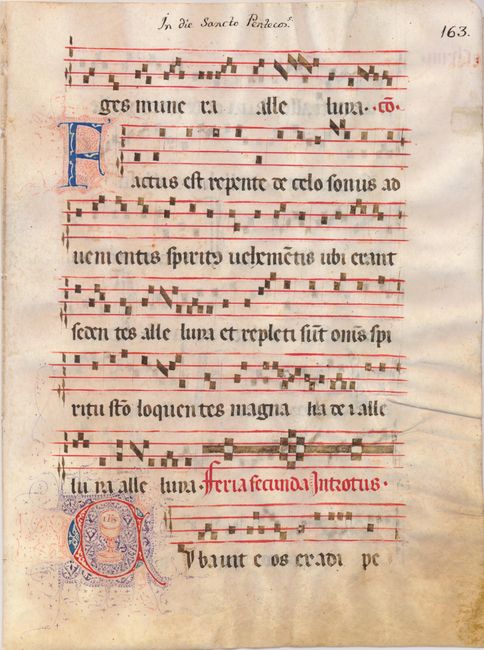 In die Sancto Pentecos.
163.
ges mune ra alle luya. cō
Factus est repente de celo sonus ad
ueni entis spiritꝰ uehemētis ubi erant
seden tes alle luya et repleti sūt om̄s spi
ritu scō loquen tes magna lia dei alle
lu ya alle luya. Feria secunda Introtus.
Cybauit e os ex adi pe